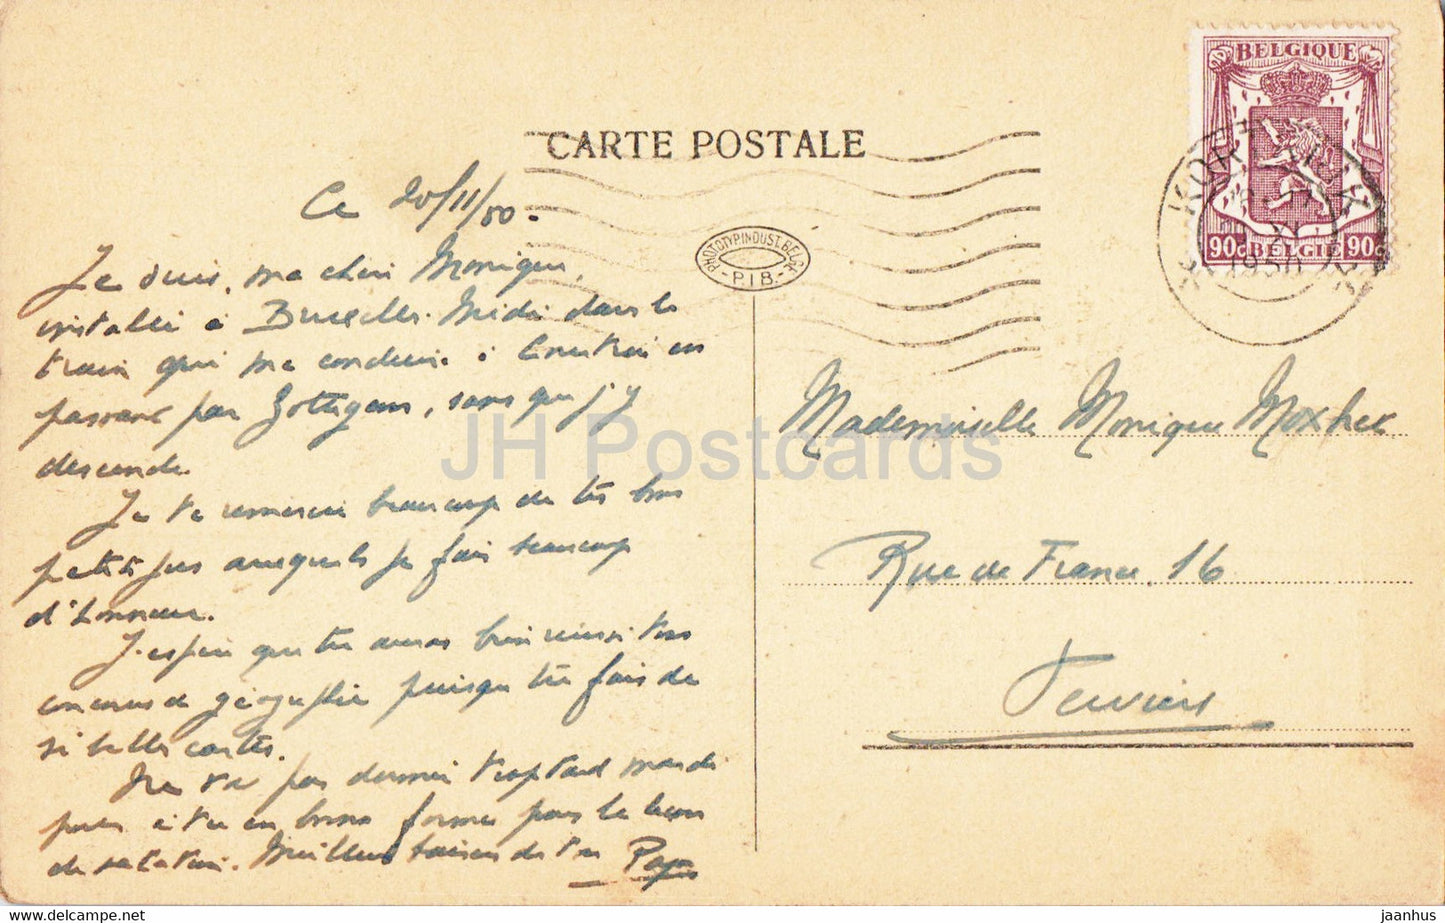 BELGIQUE
90c BELGIE 90c
KORTRIJK
1950
CARTE POSTALE
PHOTOTYP. INDUST. BELGE
- P.I.B. -
Ce 20/11/50.
Je suis, ma chère Monique,
installé à Bruxelles-Midi dans le
train qui me conduira à Courtrai en
passant par Zottegem, sans que j'y
descende.
Je te remercie beaucoup de tes bons
petits auxquels je fais beaucoup
d'honneur.
J'espère que tu auras bien réussi ton
concours de géographie puisque tu fais de
si belles cartes.
Ne va pas dormir trop tard mardi
pour être en bonne forme pour la leçon
de natation. Meilleurs baisers de ton Papa
Mademoiselle Monique Moxhet
Rue de France, 16
Verviers
JH Postcards
jaanhus
hippostcard.com